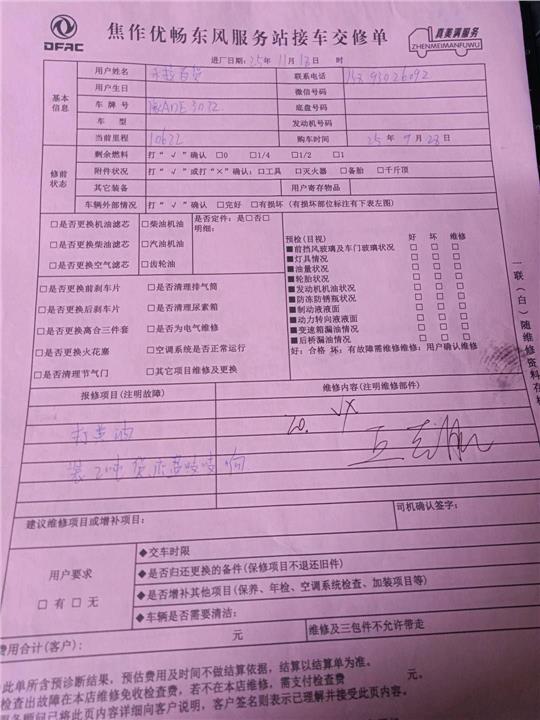 DFAC
焦作优畅东风服务站接车交修单
真美满服务
ZHENMEIMANFUWU
进厂日期：25年11月18日
基本信息
用户姓名
联系电话
用户生日
微信号码
车牌号
底盘号码
车型
发动机号码
当前里程 10622 购车时间 25年9月28日
修前状态
剩余燃料 打“√”确认 □0 □1/4 □1/2 □1
附件状况 打“√”或打“×”确认：□工具 □灭火器 □备胎 □千斤顶
其它装备 用户寄存物品
车辆外部情况 打“√”确认 □完好 □有损坏（有损坏部位标注有下表左图）
□是否更换机油滤芯 □柴油机油 是否定件：是□否□
□是否更换柴油滤芯 □汽油机油 明细：
□是否更换空气滤芯 □齿轮油
□是否更换前刹车片 □是否清理排气筒
□是否更换后刹车片 □是否清理尿素箱
□是否更换离合三件套 □是否为电气维修
□是否更换火花塞 □空调系统是否正常运行
□是否清理节气门 □其它项目维修及更换
预检(目视) 好 坏 维修
■前挡风玻璃及车门玻璃状况 □ □ □
■灯具情况 □ □ □
■油量状况 □ □ □
■轮胎状况 □ □ □
■发动机机油状况 □ □ □
■防冻防锈瓶状况 □ □ □
■制动液液面 □ □ □
■动力转向液液面 □ □ □
■变速箱漏油情况 □ □ □
■后桥漏油情况 □ □ □
好：合格 坏：有故障需维修维修：用户确认维修
报修项目(注明故障) 维修内容(注明维修部件)
打黄油
装2吨货后面吱吱响
建议维修项目或增补项目：
司机确认签字：
用户要求
□有 □无
◆交车时限
◆是否归还更换的备件(保修项目不退还旧件)
◆是否增补其他项目(保养、年检、空调系统检查、加装项目等)
◆车辆是否需要清洁：
费用合计(客户)： 元 维修及三包件不允许带走
此单所含预诊断结果，预估费用及时间不做结算依据，结算以结算单为准。
检查出故障在本店维修免收检查费，若不在本店维修，需支付检查费 元。
已将此页内容详细向客户说明，客户签名则表示已理解并接受此页内容。
一联（白）随维修资料存档